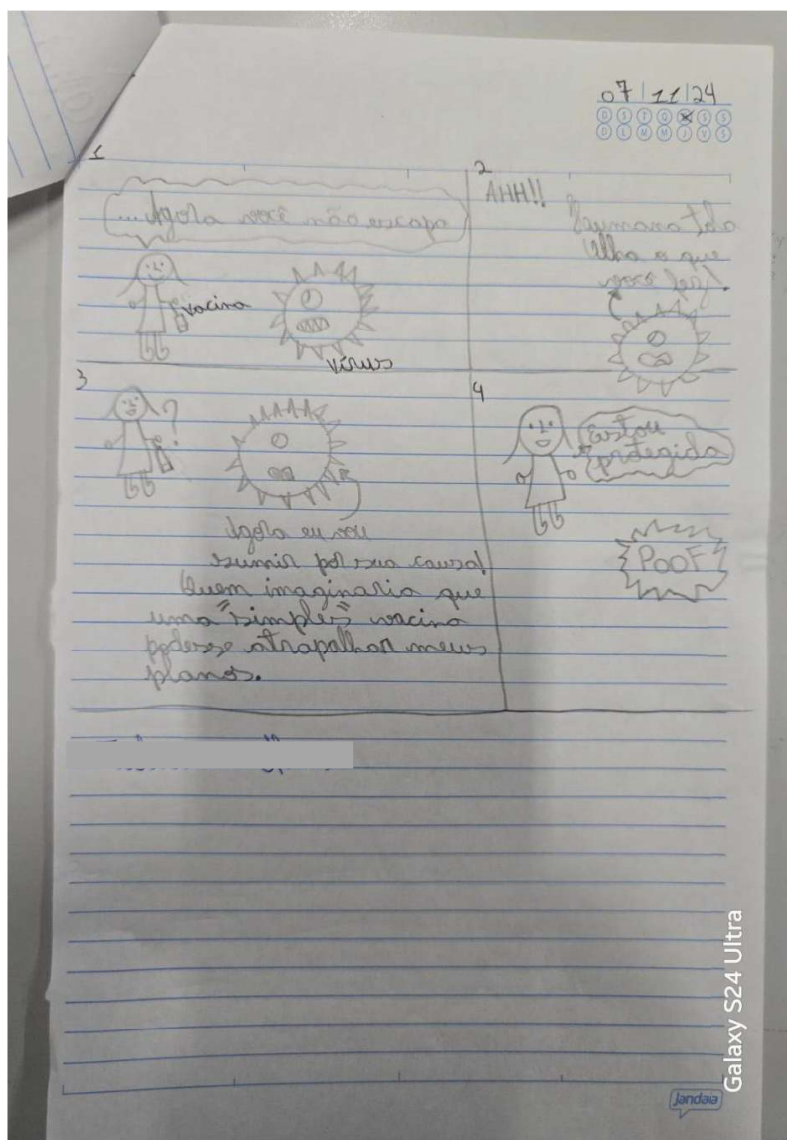 07/11/24
D S T Q Q S S
D L M M J V S
1
...Agora você não escapa
vacina
vírus
2
AHH!!
Olha o que
você fez!
3
?
Agora eu vou
sumir por sua causa!
Quem imaginaria que
uma "simples" vacina
podesse atrapalhar meus
planos.
4
Estou
protegida
POOF
Jandaia
Galaxy S24 Ultra